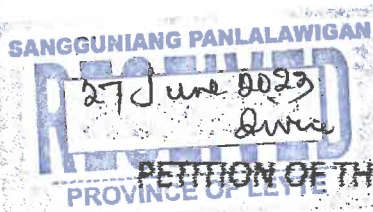 SANGGUNIANG PANLALAWIGAN
RECEIVED
27 June 2023
PETITION OF TH
PROVINCE OF LEYTE